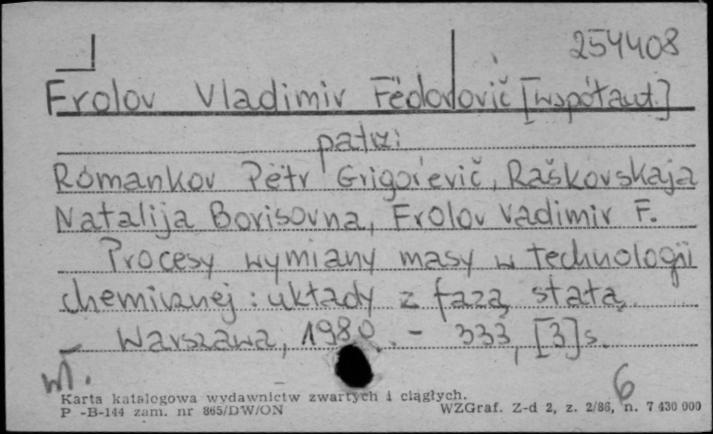 254408
Frolov Vladimir Fëdorovič [współaut.]
patrz:
Romankov Pëtr Grigor'evič, Raškovskaja
Natalija Borisovna, Frolov Vadimir F.
Procesy wymiany masy w technologii
chemicznej : układy z fazą stałą.
– Warszawa, 1980. – 333, [3] s.
wł. 6
Karta katalogowa wydawnictw zwartych i ciągłych.
P -B-144 zam. nr 865/DW/ON WZGraf. Z-d 2, z. 2/86, n. 7 430 000